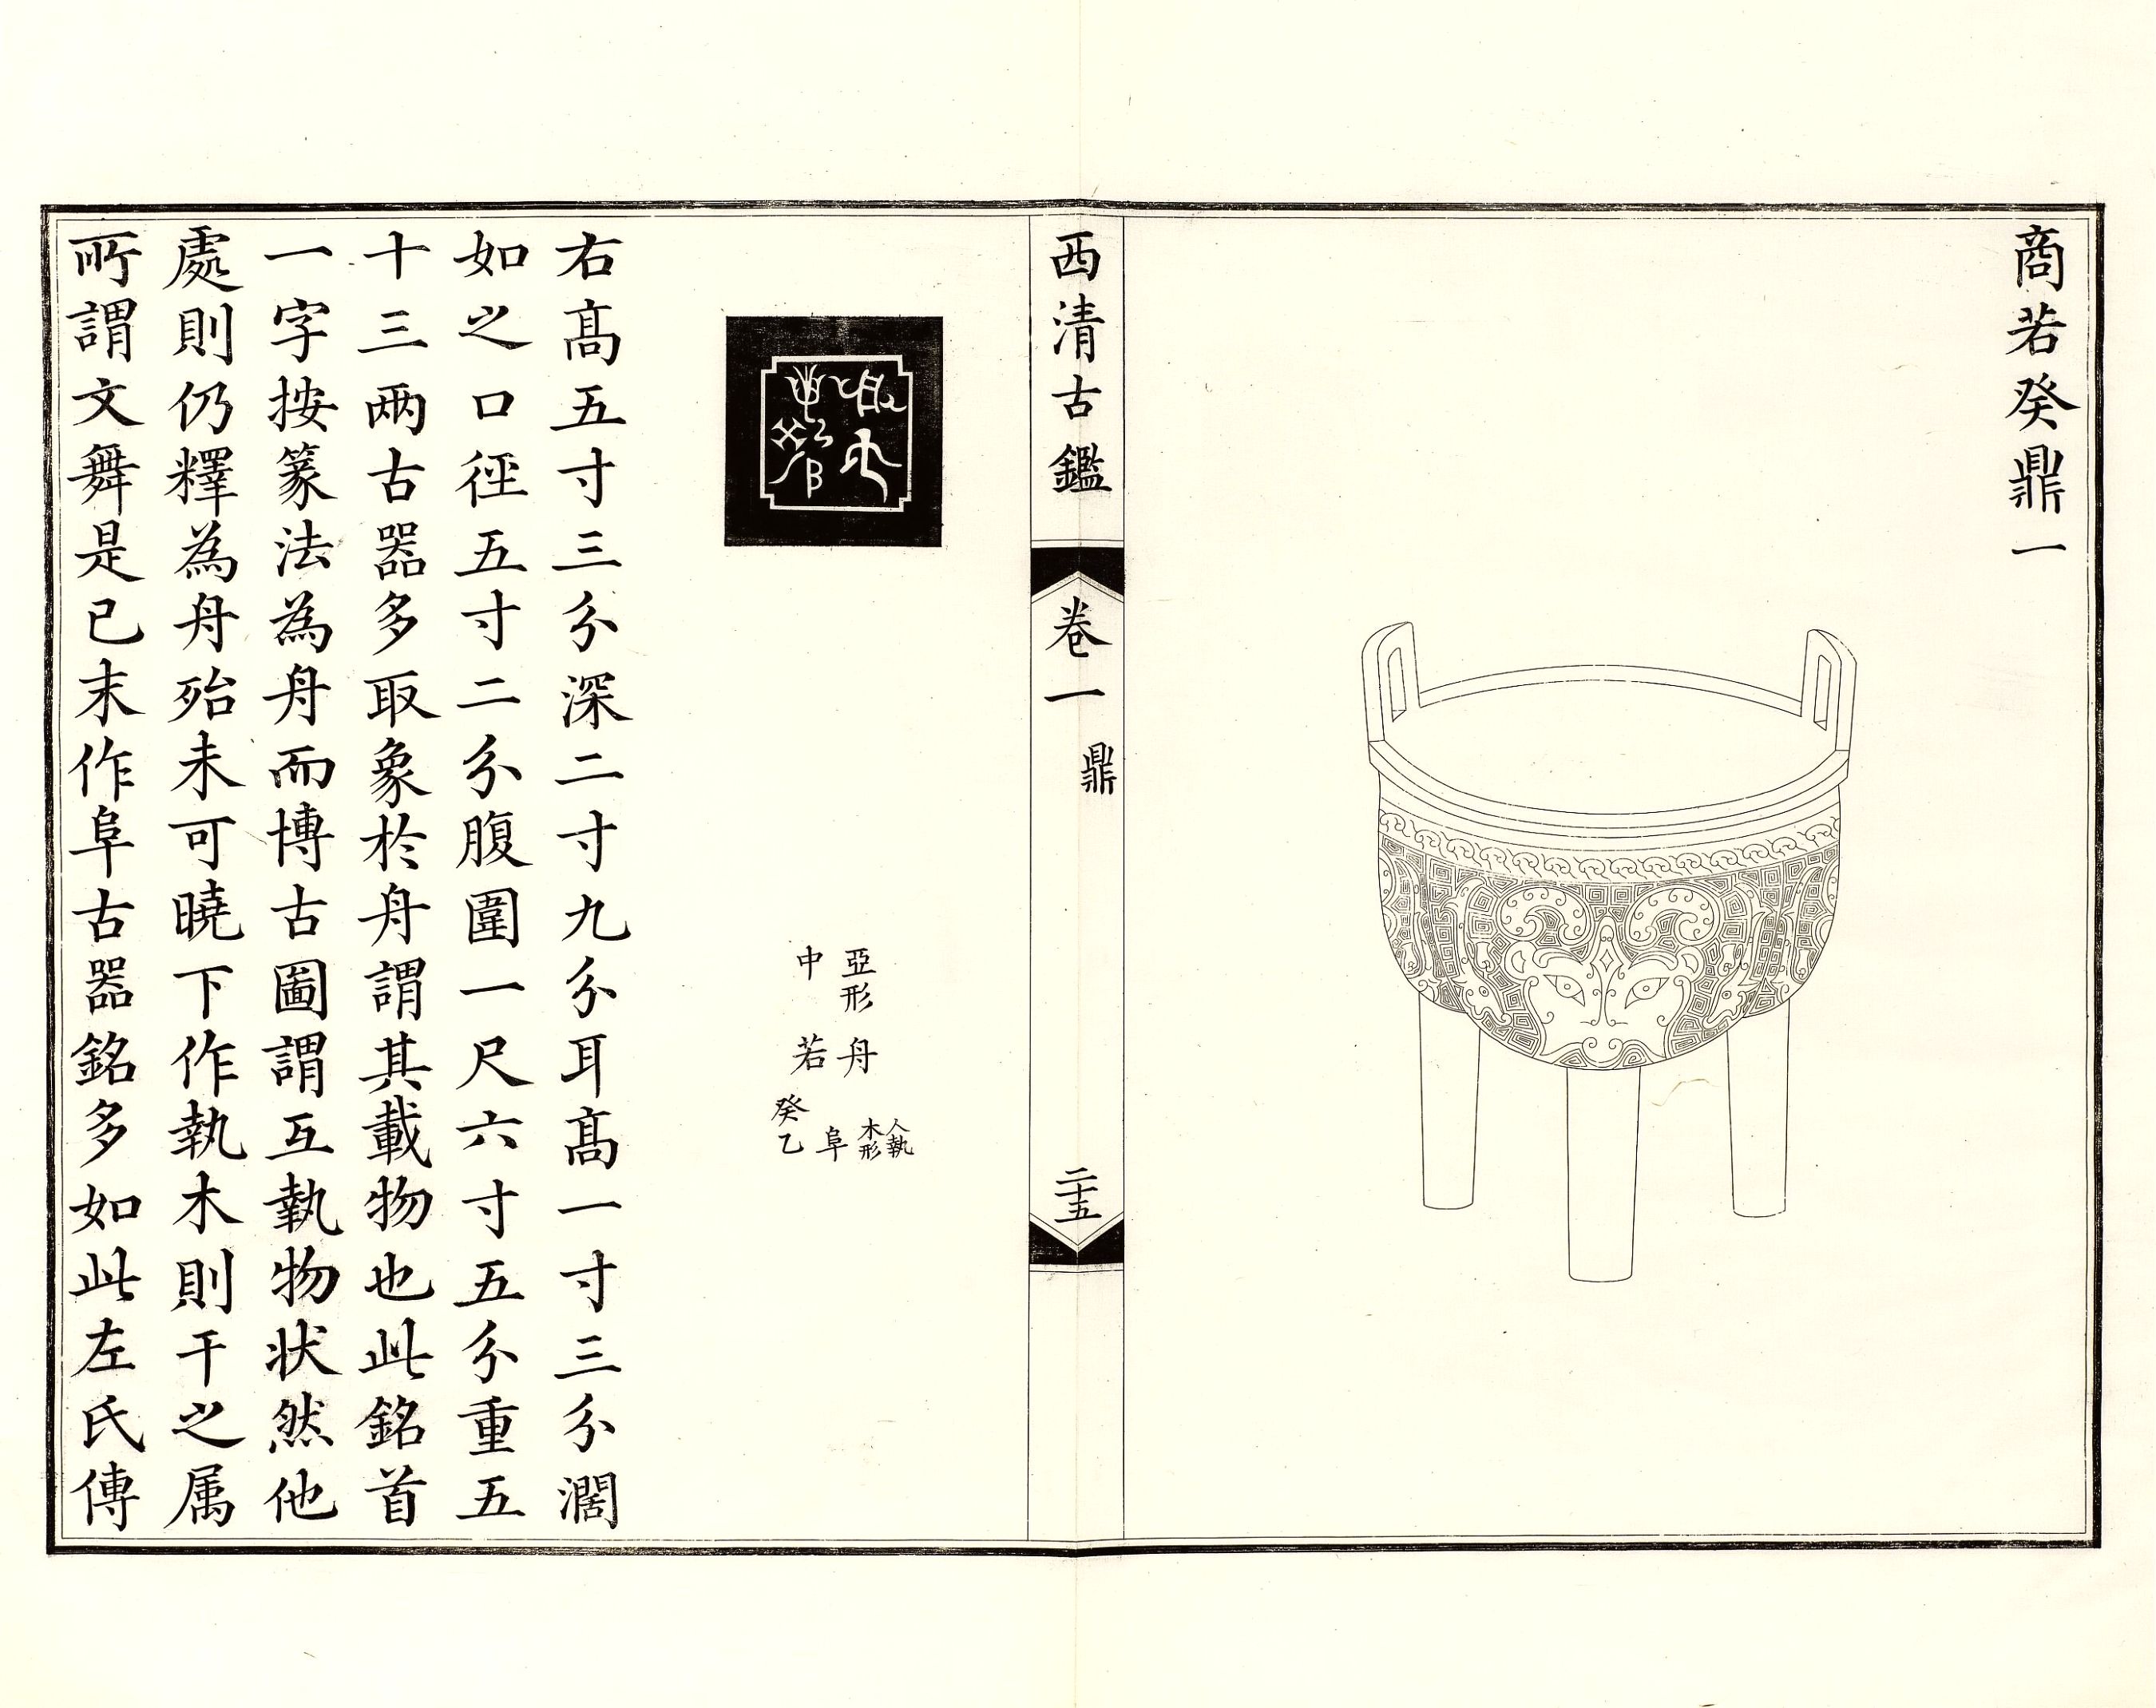 商若癸鼎一
西清古鑑
卷一
鼎
二十五
亞形
中
舟
若
人執
木形
阜
癸
乙
右髙五寸三分深二寸九分耳髙一寸三分濶
如之口徑五寸二分腹圍一尺六寸五分重五
十三两古器多取象於舟謂其載物也此銘首
一字按篆法為舟而博古圖謂互執物狀然他
處則仍釋為舟殆未可曉下作執木則干之属
所謂文舞是已末作阜古器銘多如此左氏傳